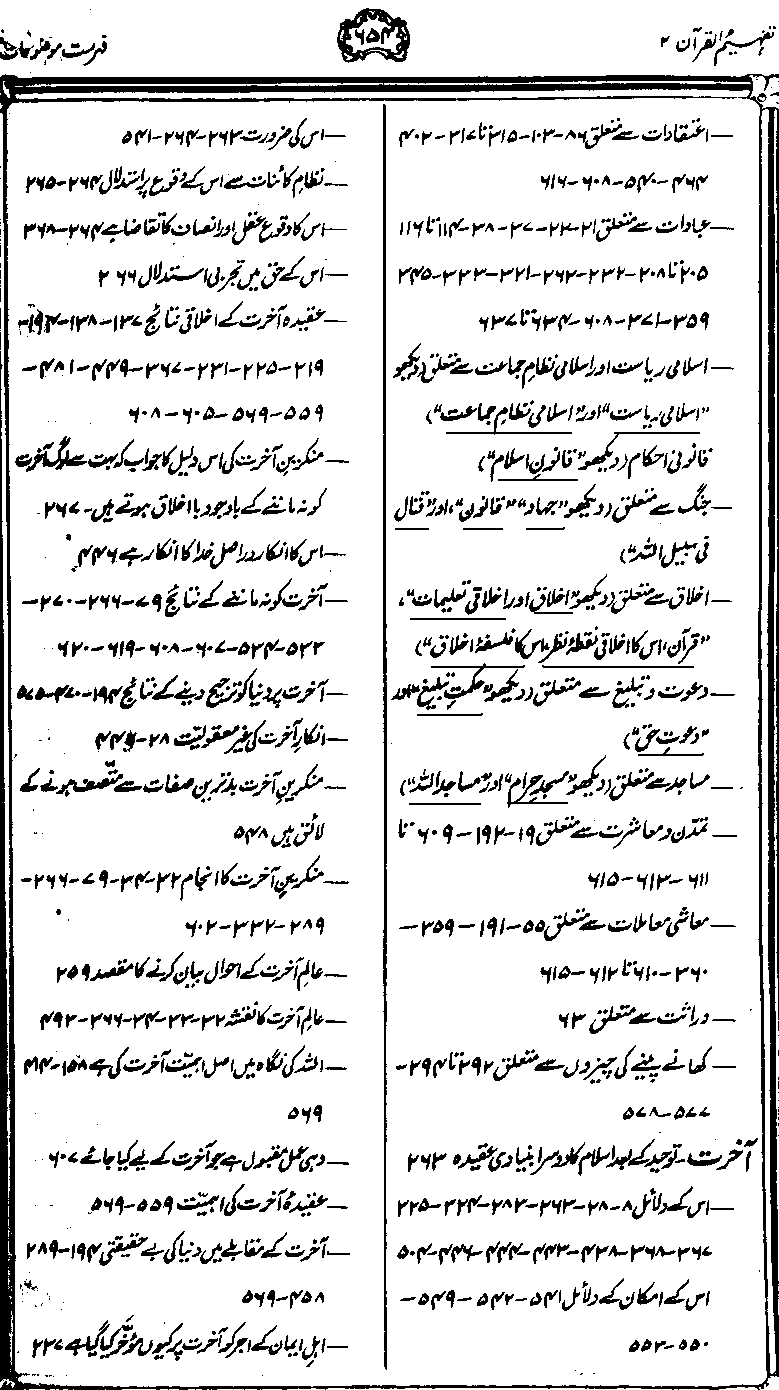 تفہیم القرآن ۲
۶۵۴
فہرست موضوعات
— اعتقادات سے متعلق ۸۶-۱۰۳-۳۱۵ تا ۳۱۷-۴۰۲
۴۶۴-۵۴۰-۶۰۸-۶۱۶
— عبادات سے متعلق ۲۱-۲۲-۳۷-۳۸-۱۱۴ تا ۱۱۶
۲۰۵ تا ۲۰۸-۲۳۲-۲۶۲-۳۲۱-۳۳۳-۳۴۵
۳۵۹-۳۷۱-۶۰۸-۶۳۴ تا ۶۳۷
— اسلامی ریاست اور اسلامی نظامِ جماعت سے متعلق (دیکھو
”اسلامی ریاست“ اور ”اسلامی نظامِ جماعت“)
قانونی احکام (دیکھو ”قانونِ اسلام“)
— جنگ سے متعلق (دیکھو ”جہاد“، ”قانون“، اور ”قتال
فی سبیل اللہ“)
— اخلاق سے متعلق (دیکھو ”اخلاق اور اخلاقی تعلیمات“،
”قرآن، اس کا اخلاقی نقطۂ نظر، اس کا فلسفۂ اخلاق“)
— دعوت و تبلیغ سے متعلق (دیکھو ”حکمتِ تبلیغ“ اور
”دعوتِ حق“)
— مساجد سے متعلق (دیکھو ”مسجدِ حرام“ اور ”مساجد اللہ“)
— تمدّن و معاشرت سے متعلق ۱۹-۱۹۲-۶۰۹ تا
۶۱۱-۶۱۳-۶۱۵
— معاشی معاملات سے متعلق ۵۵-۱۹۱-۳۵۹-
۳۶۰-۶۱۰ تا ۶۱۲-۶۱۵
— وراثت سے متعلق ۶۳
— کھانے پینے کی چیزوں سے متعلق ۲۹۲ تا ۲۹۴-
۵۷۷-۵۷۸
آخرت- توحید کے بعد اسلام کا دوسرا بنیادی عقیدہ ۲۶۳
— اس کے دلائل ۸-۲۸-۲۶۳-۲۸۳-۳۲۴-۲۲۵
۳۶۷-۳۶۸-۴۳۸-۴۴۳-۴۴۴-۴۴۶-۵۰۴
اس کے امکان کے دلائل ۵۴۱-۵۴۲-۵۴۹-
۵۵۰-۵۵۳
— اس کی ضرورت ۲۶۳-۲۶۴-۵۴۱
— نظامِ کائنات سے اس کے وقوع پر استدلال ۲۶۴-۲۶۵
— اس کا وقوع عقل اور انصاف کا تقاضا ہے ۲۶۴-۳۶۸
— اس کے حق میں تجربی استدلال ۲۶۶
— عقیدہ آخرت کے اخلاقی نتائج ۱۳۷-۱۳۸-۱۹۴-
۲۱۹-۲۲۵-۲۳۱-۳۶۷-۴۴۹-۴۸۱-
۵۵۹-۵۶۹-۶۰۵-۶۰۸
— منکرینِ آخرت کی اس دلیل کا جواب کہ بہت سے لوگ آخرت
کو نہ ماننے کے باوجود با اخلاق ہوتے ہیں- ۲۶۷
— اس کا انکار دراصل خدا کا انکار ہے ۴۴۶
— آخرت کو نہ ماننے کے نتائج ۷۹-۲۶۶-۲۷۰-
۵۳۳-۵۳۴-۶۰۷-۶۰۸-۶۱۹-۶۲۰
— آخرت پر دنیا کو ترجیح دینے کے نتائج ۱۹۴-۴۷۰-۵۷۵
— انکارِ آخرت کی غیر معقولیت ۲۸-۴۴۶
— منکرینِ آخرت بدترین صفات سے متّصف ہونے کے
لائق ہیں ۵۴۸
— منکرینِ آخرت کا انجام ۳۲-۳۴-۷۹-۲۶۶-
۲۸۹-۳۳۲-۶۰۲
— عالمِ آخرت کے احوال بیان کرنے کا مقصد ۲۵۹
— عالمِ آخرت کا نقشہ ۳۲-۳۳-۳۴-۳۶۶-۴۹۳
— اللہ کی نگاہ میں اصل اہمیّت آخرت کی ہے ۱۵۸-۴۱۴
۵۶۹
— وہی عمل مقبول ہے جو آخرت کے لیے کیا جائے ۶۰۷
— عقیدۂ آخرت کی اہمیّت ۵۵۹-۵۶۹
— آخرت کے مقابلے میں دنیا کی بے حقیقتی ۱۹۴-۲۸۹
۴۵۸-۵۶۹
— اہلِ ایمان کے اجر کو آخرت پر کیوں مؤخّر کیا گیا ہے ۲۳۷